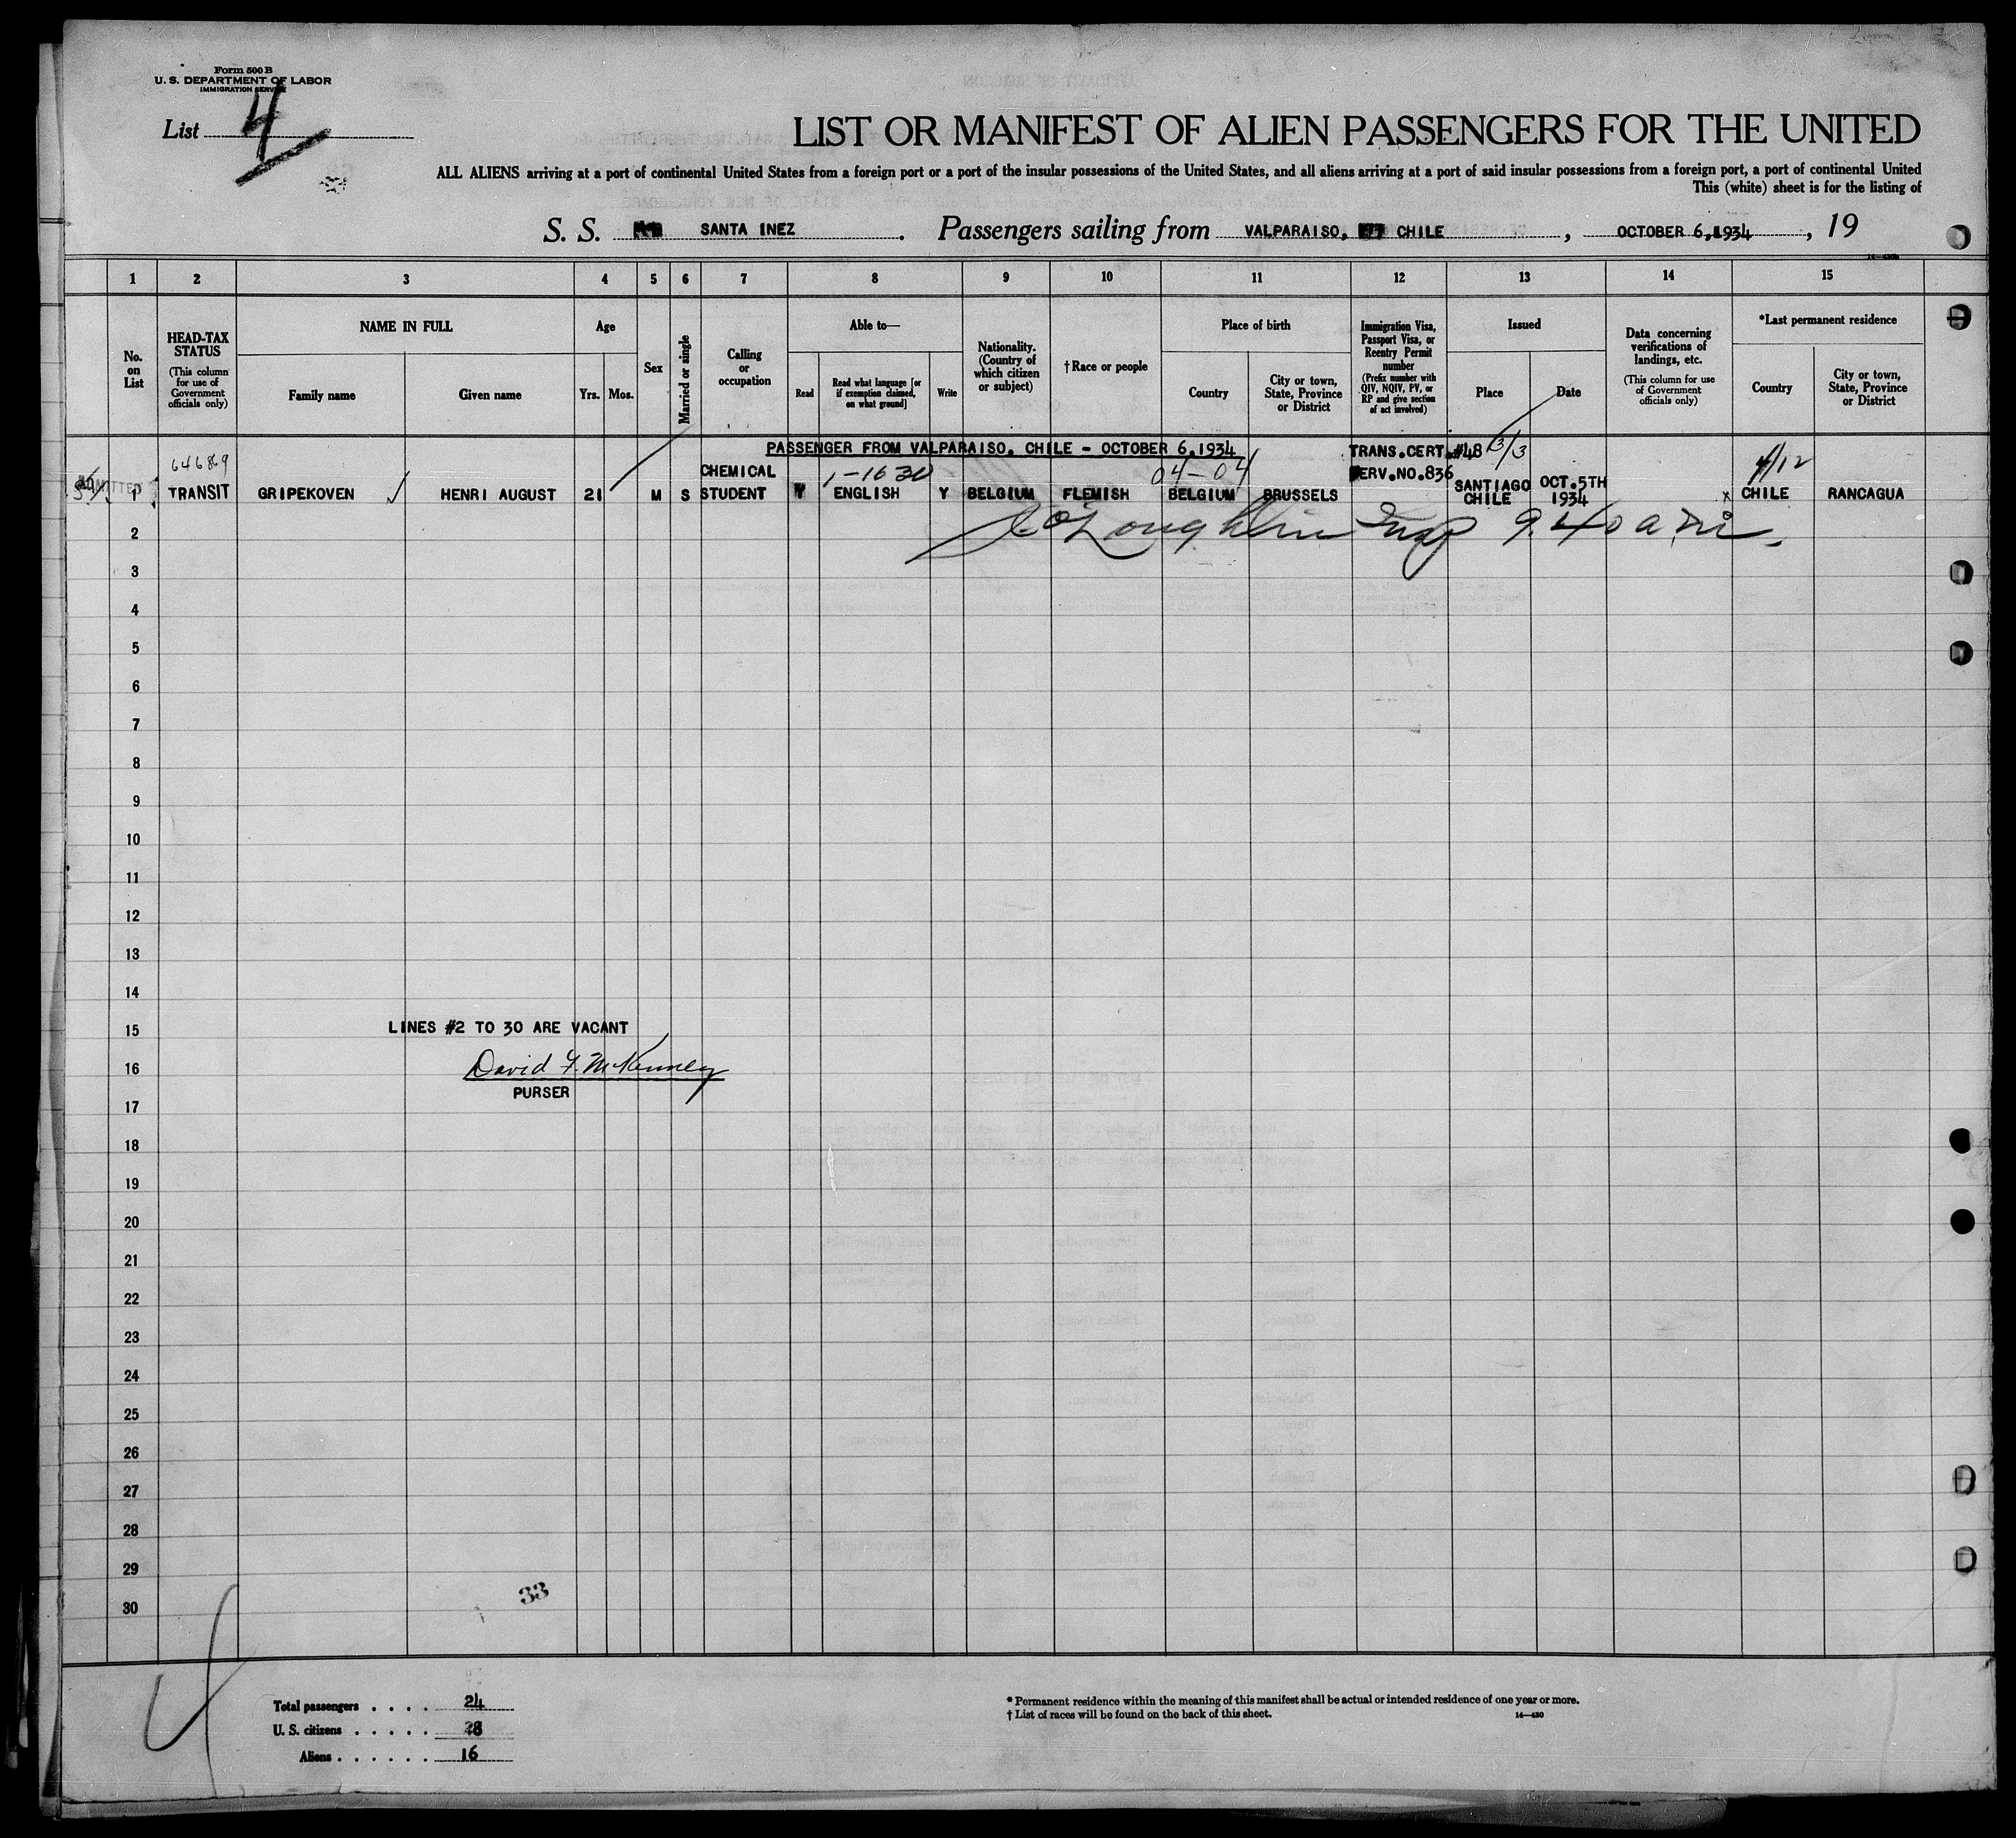 Form 500 B
U. S. DEPARTMENT OF LABOR
IMMIGRATION SERVICE
List 4
LIST OR MANIFEST OF ALIEN PASSENGERS FOR THE UNITED
ALL ALIENS arriving at a port of continental United States from a foreign port or a port of the insular possessions of the United States, and all aliens arriving at a port of said insular possessions from a foreign port, a port of continental United
This (white) sheet is for the listing of
S. S. SANTA INEZ. Passengers sailing from VALPARAISO, CHILE, OCTOBER 6,1934, 19
1 2 3 4 5 6 7 8 9 10 11 12 13 14 15
No. on List
HEAD-TAX STATUS
(This column for use of Government officials only)
NAME IN FULL
Family name
Given name
Age
Yrs. Mos.
Sex
Married or single
Calling or occupation
Able to—
Read
Read what language [or if exemption claimed, on what ground]
Write
Nationality. (Country of which citizen or subject)
†Race or people
Place of birth
Country
City or town, State, Province or District
Immigration Visa, Passport Visa, or Reentry Permit number
(Prefix number with QIV, NQIV, PV, or RP and give section of act involved)
Issued
Place
Date
Data concerning verifications of landings, etc.
(This column for use of Government officials only)
*Last permanent residence
Country
City or town, State, Province or District
PASSENGER FROM VALPARAISO, CHILE - OCTOBER 6,1934
TRANS.CERT.#48 3/3
64689
CHEMICAL
1-1630
04-04
SERV.NO.836
4/12
ADMITTED 1 TRANSIT GRIPEKOVEN HENRI AUGUST 21 M S STUDENT Y ENGLISH Y BELGIUM FLEMISH BELGIUM BRUSSELS SANTIAGO CHILE OCT.5TH 1934 CHILE RANCAGUA
O'Loughlin Insp 9.40 a.m.
2
3
4
5
6
7
8
9
10
11
12
13
14
15
LINES #2 TO 30 ARE VACANT
16
David F. McKenney
PURSER
17
18
19
20
21
22
23
24
25
26
27
28
29
30
33
Total passengers . . . . 24
U. S. citizens . . . . . 8
Aliens . . . . . . 16
* Permanent residence within the meaning of this manifest shall be actual or intended residence of one year or more.
† List of races will be found on the back of this sheet.
14—430